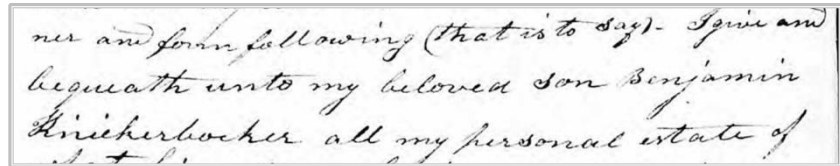 ner and form following (that is to say). I give and
bequeath unto my beloved son Benjamin
Knickerbocker all my personal estate of